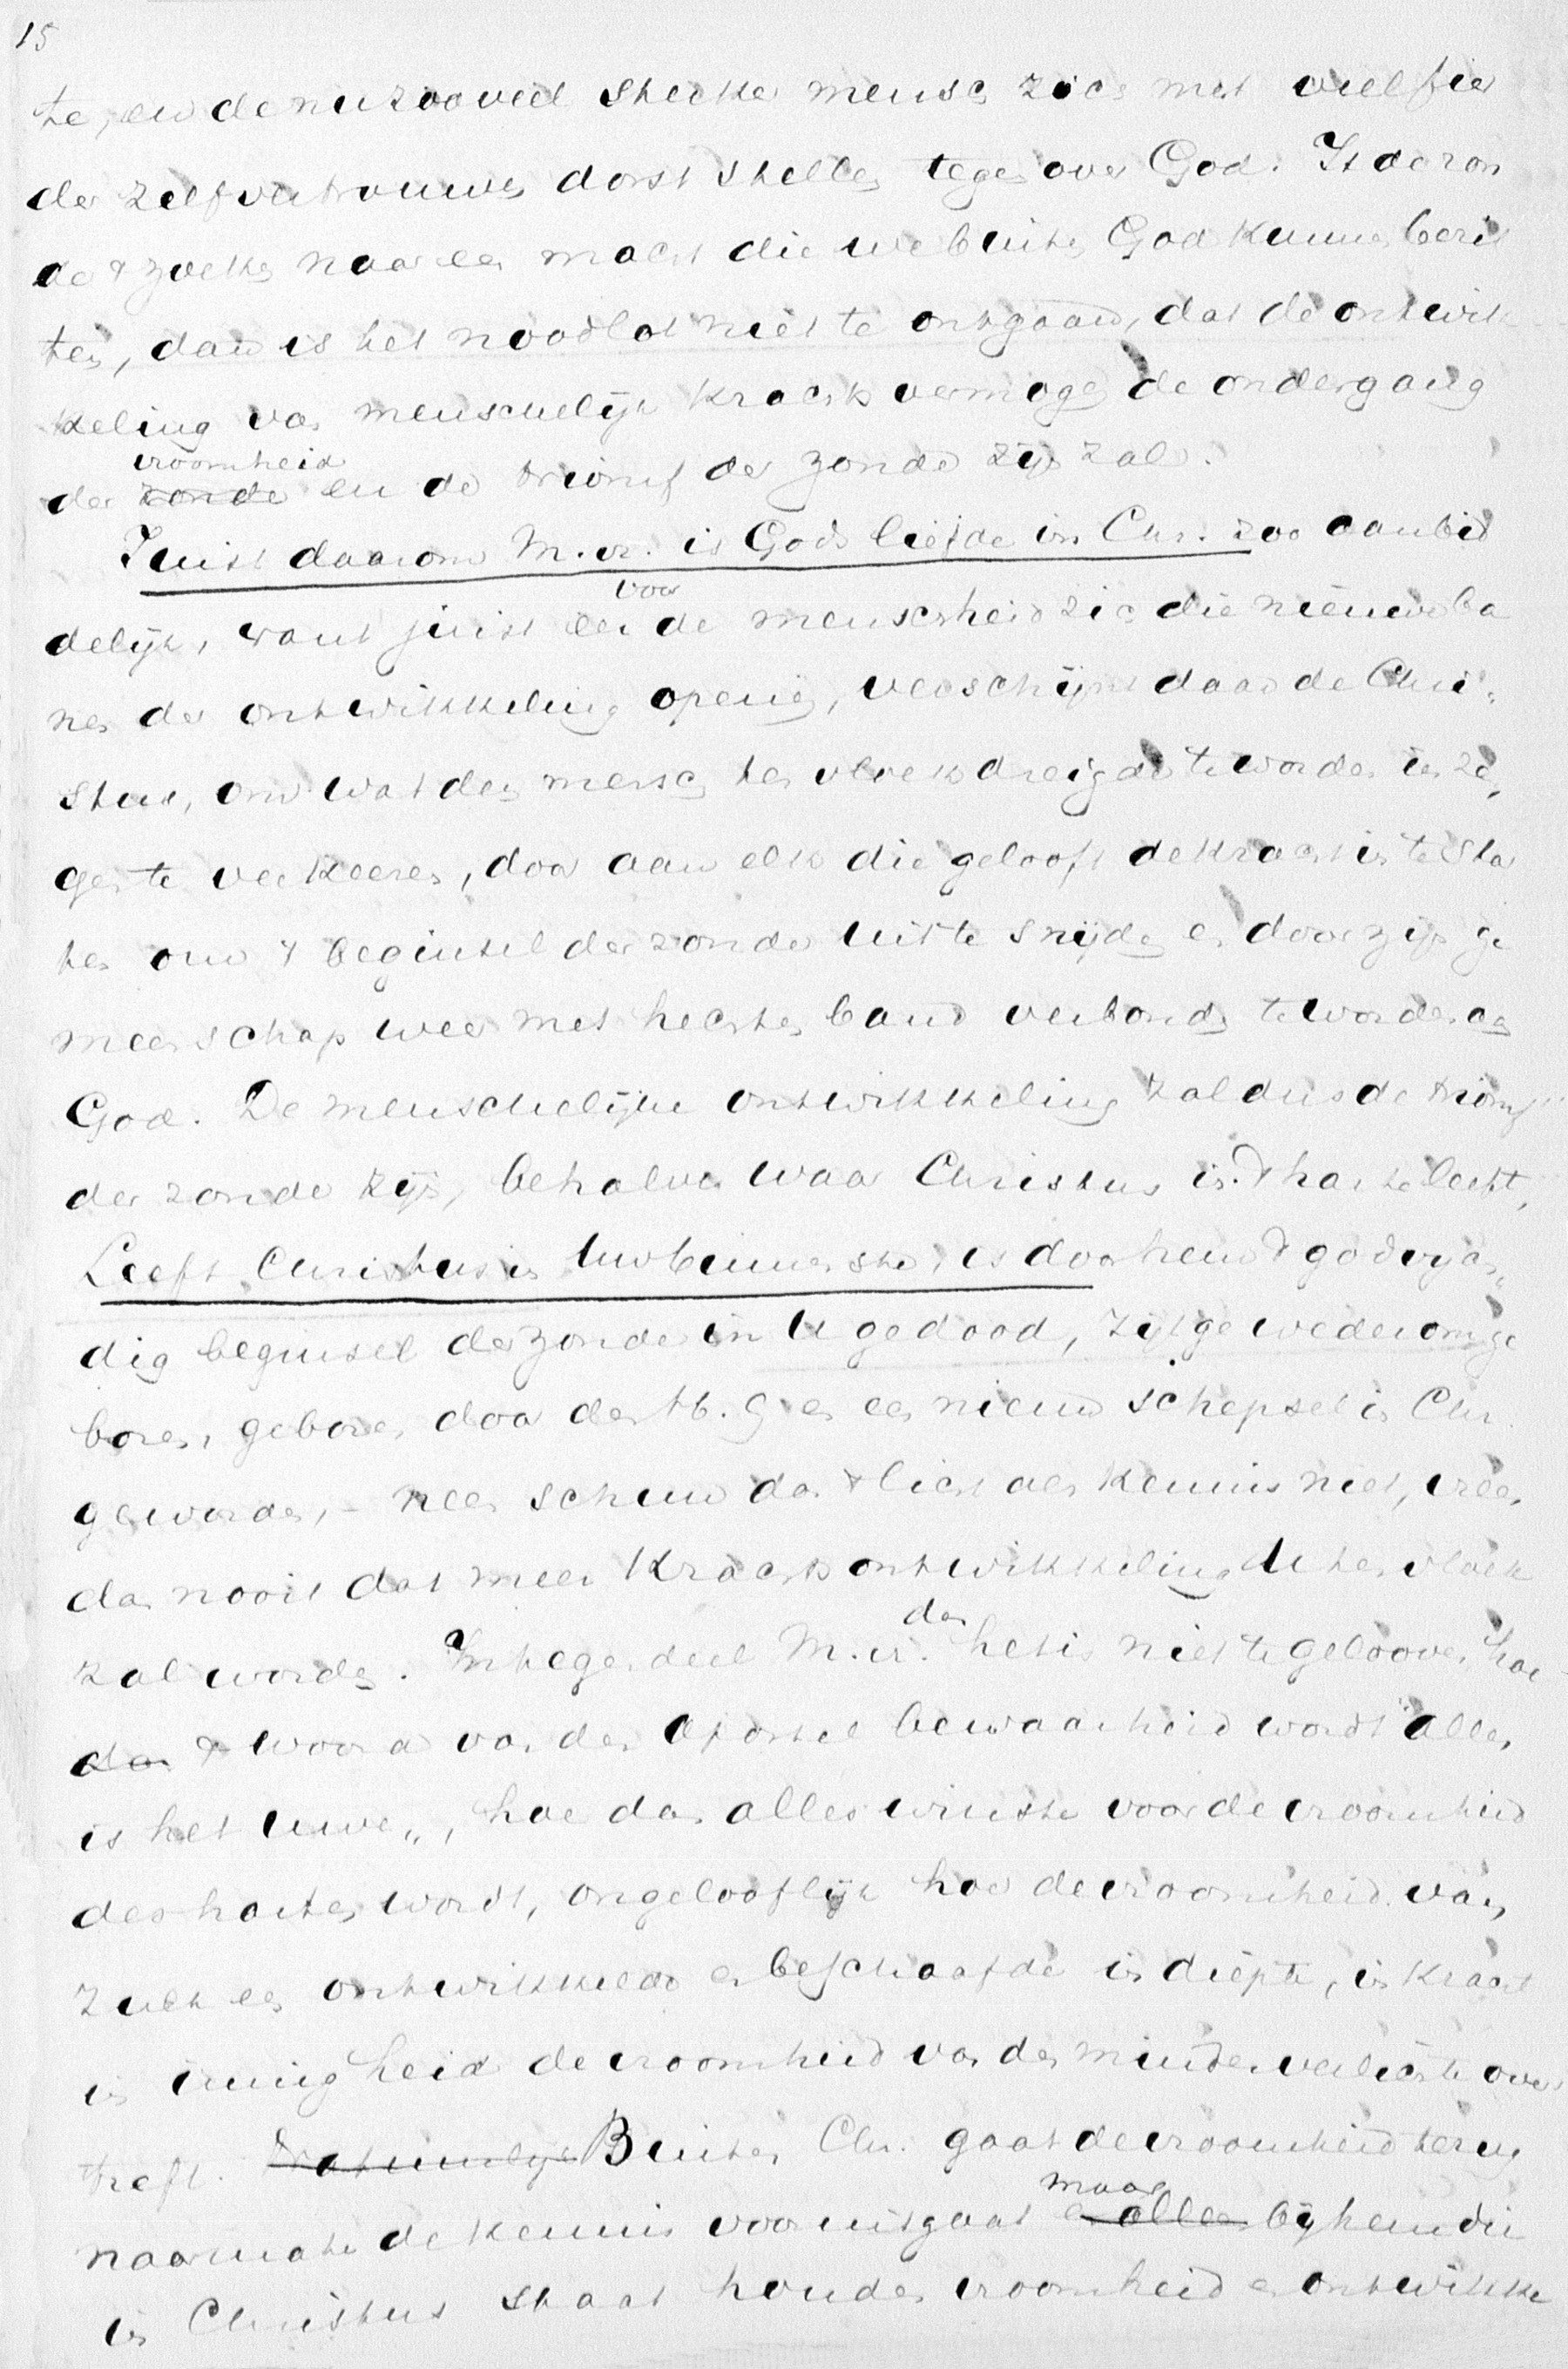 15
te, en de nu zooveel sterker mensch zich met veel fier
der zelfvertrouwen dorst stellen tegenover God. Is de zon
de 't zoeken naar een macht die we buiten God kunnen bezit
ten, dan is het noodlot niet te ontgaan, dat de ontwik
keling van menschelijk krachtsvermogen de ondergang
vroomheid
der zonde en de triomf der zonde zijn zal.
Juist daarom M.v. is Gods liefde in Chr. zoo aanbid
voor
delijk, want juist eer de menschheid zich die nieuwe ba
nen der ontwikkeling opening, verschijnt daar de Chri-
stus, om wat den mensch ten vloek dreigde te worden in ze-
gen te verkeeren, door aan elk die gelooft de kracht in te stor
ten om 't beginsel der zonde uit te snijden en door zijn ge
meenschap weer met hechten band verbonden te worden aan
God. De menschelijke ontwikkeling zal dus de triomf
der zonde zijn, behalve waar Christus in 't hart leeft,
Leeft Christus in Uw binnenste, is door hem 't godvijan-
dig beginsel der zonde in U gedood, zijt ge wederomge
boren, geboren door den H. G. en een nieuw schepsel in Chr.
geworden, – neen schuw dan 't licht der kennis niet, vrees
dan nooit dat meer krachtsontwikkeling U ten vloek
zal worden. Integendeel M.v. het is niet te gelooven hoe
dan
dan 't woord van den Apostel bewaarheid wordt "alles
is het uwe", hoe dan alles winste voor de vroomheid
des harten wordt, ongelooflijk hoe de vroomheid van
zulk een ontwikkelde en beschaafde in diepte, in kracht
in innigheid de vroomheid van den minder verlichte over
treft. Natuurlijk Buiten Chr. gaat de vroomheid terug
maar
naarmate de kennis vooruitgaat en alleen bij hem die
in Christus staat houden vroomheid en ontwikke